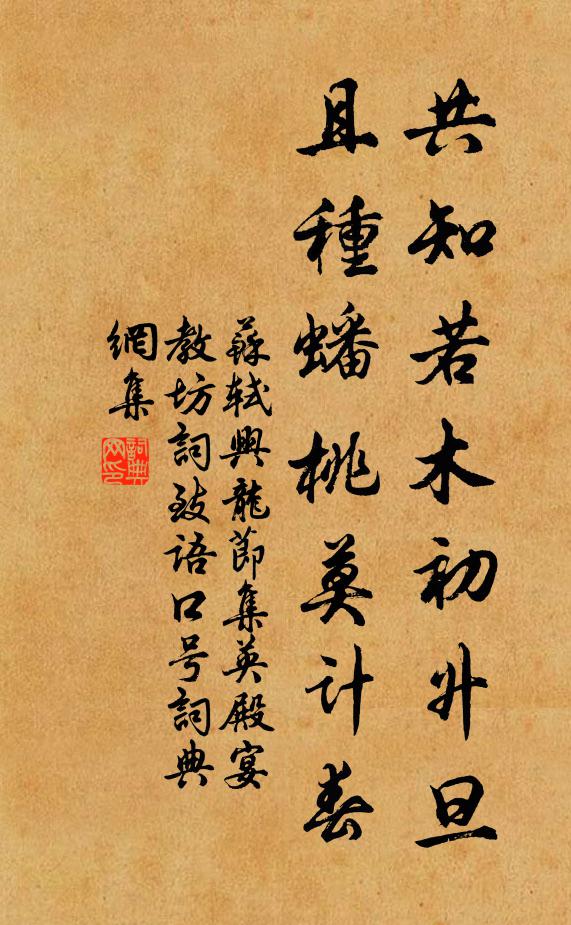 共知若木初升旦
且種蟠桃莫計春
蘇軾興龍節集英殿宴
教坊詞致語口号詞典
網集
詞典网印